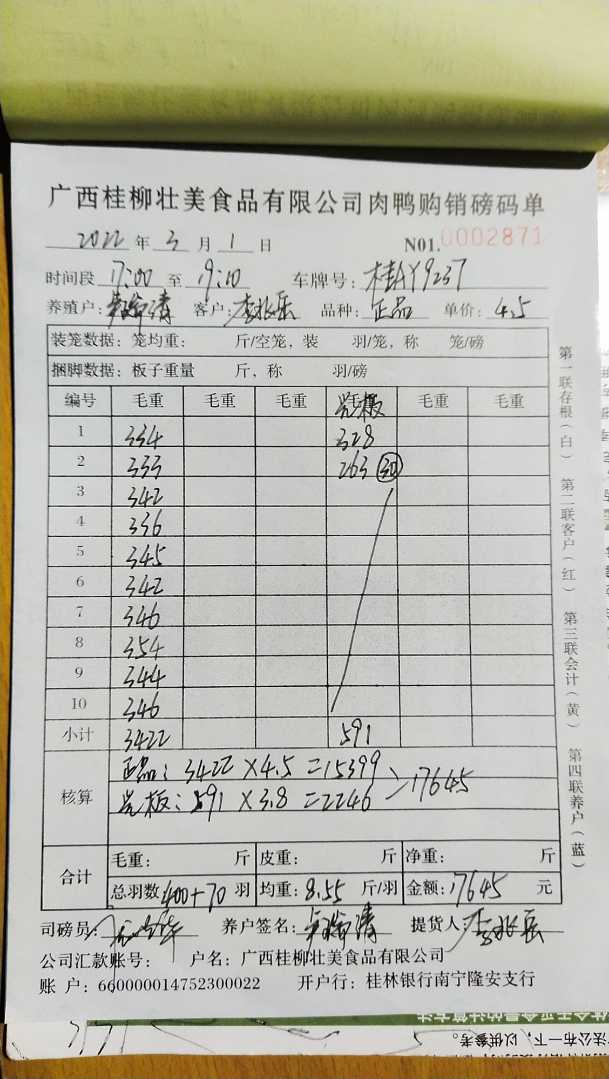 广西桂柳壮美食品有限公司肉鸭购销磅码单
2022 年 3 月 1 日 N01.0002871
时间段 17:00 至 19:10 车牌号: 桂AY9237
养殖户: 客户: 李兆岳 品种: 正品 单价: 4.5
装笼数据: 笼均重: 斤/空笼, 装 羽/笼, 称 笼/磅
捆脚数据: 板子重量 斤, 称 羽/磅
编号 毛重 毛重 毛重 毛重 毛重 毛重
1 334 328
2 333 263 30
3 342
4 336
5 345
6 342
7 346
8 354
9 344
10 346
小计 3422 591
核算
正品: 3422×4.5=15399
591×3.8=2246 >17645
合计
毛重: 斤 皮重: 斤 净重: 斤
总羽数 400+70 羽 均重: 8.55 斤/羽 金额: 17645 元
司磅员: 养户签名: 提货人: 李兆岳
公司汇款账号: 户名: 广西桂柳壮美食品有限公司
账 户: 660000014752300022 开户行: 桂林银行南宁隆安支行
第一联存根(白) 第二联客户(红) 第三联会计(黄) 第四联养户(蓝)
法公布一下, 以供参考。